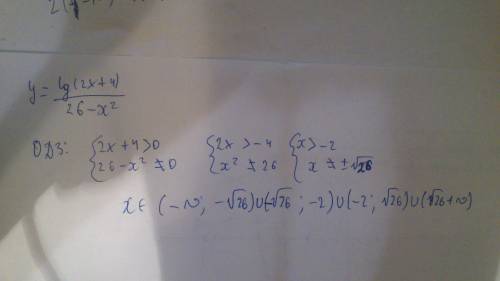 y = lg(2x+4) / 26-x²
ОДЗ: { 2x+4>0 { 2x>-4 { x>-2
26-x² ≠ 0 x² ≠ 26 x ≠ ±√26
x ∈ (-∞; -√26)∪(-√26; -2)∪(-2; √26)∪(√26+∞)